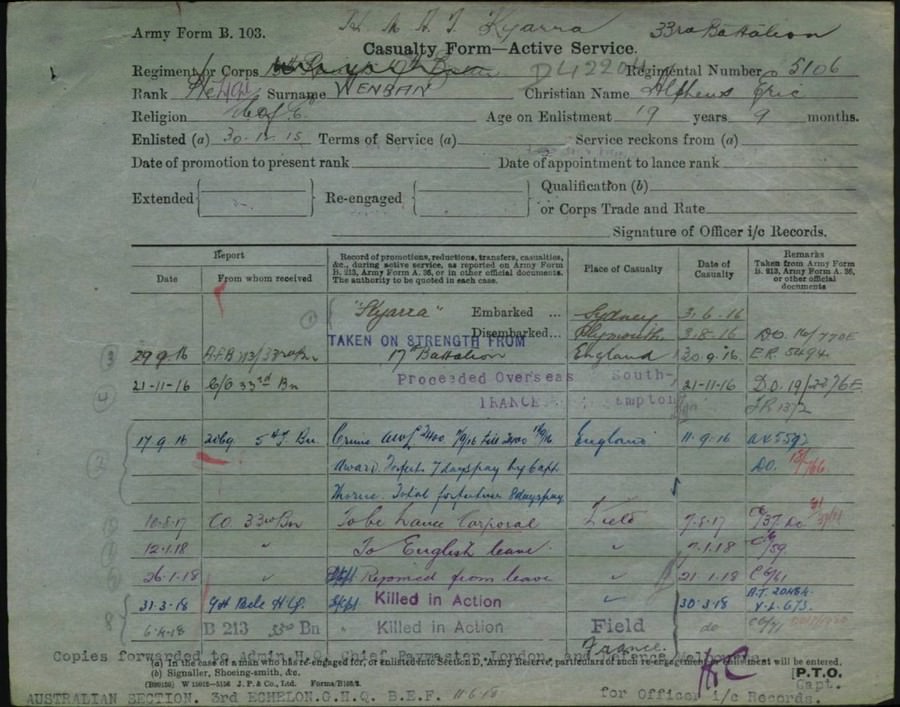 H. M. A. T. Kyarra 33rd Battalion
Army Form B. 103.
Casualty Form—Active Service.
Regiment or Corps D42204 Regimental Number 5106
Rank Surname WENBAN Christian Name Alpheus Eric
Religion C of E. Age on Enlistment 19 years 9 months.
Enlisted (a) 30.12.15 Terms of Service (a) Service reckons from (a)
Date of promotion to present rank Date of appointment to lance rank
Extended Re-engaged Qualification (b)
or Corps Trade and Rate
Signature of Officer i/c Records.
Report Record of promotions, reductions, transfers, casualties, &c., during active service, as reported on Army Form B. 213, Army Form A. 36, or in other official documents. The authority to be quoted in each case. Place of Casualty Date of Casualty Remarks Taken from Army Form B. 213, Army Form A. 36, or other official documents
Date From whom received
1 "Kyarra" Embarked ... Sydney 3.6.16
Disembarked... Plymouth 3.8.16 D.O. 16/770E
TAKEN ON STRENGTH FROM
3 29.9.16 A.F.B 213/33rd Bn 17th Battalion England 20.9.16. E.R. 5494
4 21-11-16 C/O 33rd Bn Proceeded Overseas South- 21-11-16 D.O. 19/2276E
FRANCE ampton
2 17.9.16 5th T. Bn. Crime AWL 2400 till England 11.9.16
Award. Forfeits 7 days pay by Capt. D.O.
Total forfeiture 8 days pay
10.8.17 CO. 33rd Bn To be Lance Corporal Field 7.8.17
12.1.18 " To English leave " 7.1.18 C/59.
26.1.18 " Rejoined from leave " 21.1.18 C 6/61
8 31.3.18 Killed in Action " 30.3.18
6.4.18 B 213 33rd Bn Killed in Action Field do
France.
Copies forwarded to Admin.H.Q. Chief Paymaster London, and Defence Melbourne.
(a) In the case of a man who has re-engaged for, or enlisted into Section D, "Army Reserve", particulars of such re-engagement or enlistment will be entered.
(b) Signaller, Shoeing-smith, &c. [P.T.O.
J. P. & Co., Ltd. Forms/B103/2. Capt.
AUSTRALIAN SECTION. 3rd ECHELON.G.H.Q. B.E.F. for Officer i/c Records.